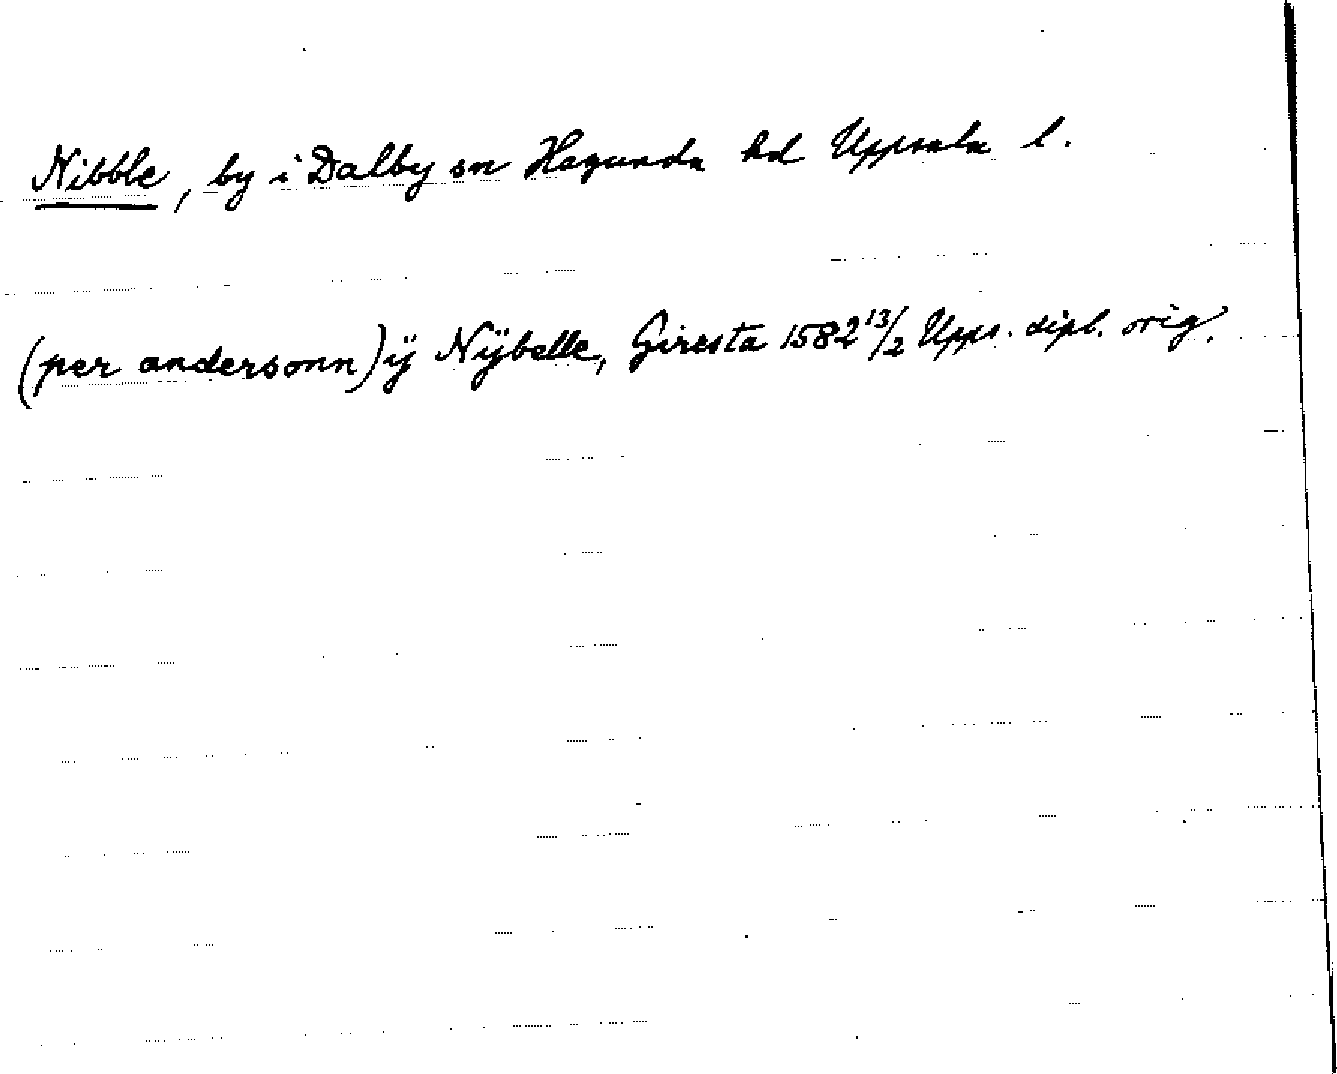 Nibble, by i Dalby sn Hagunda hd Uppsala l.
(per andersonn) ÿ Nÿbelle, Giresta 1582 13/2 Upps. dipl. orig.